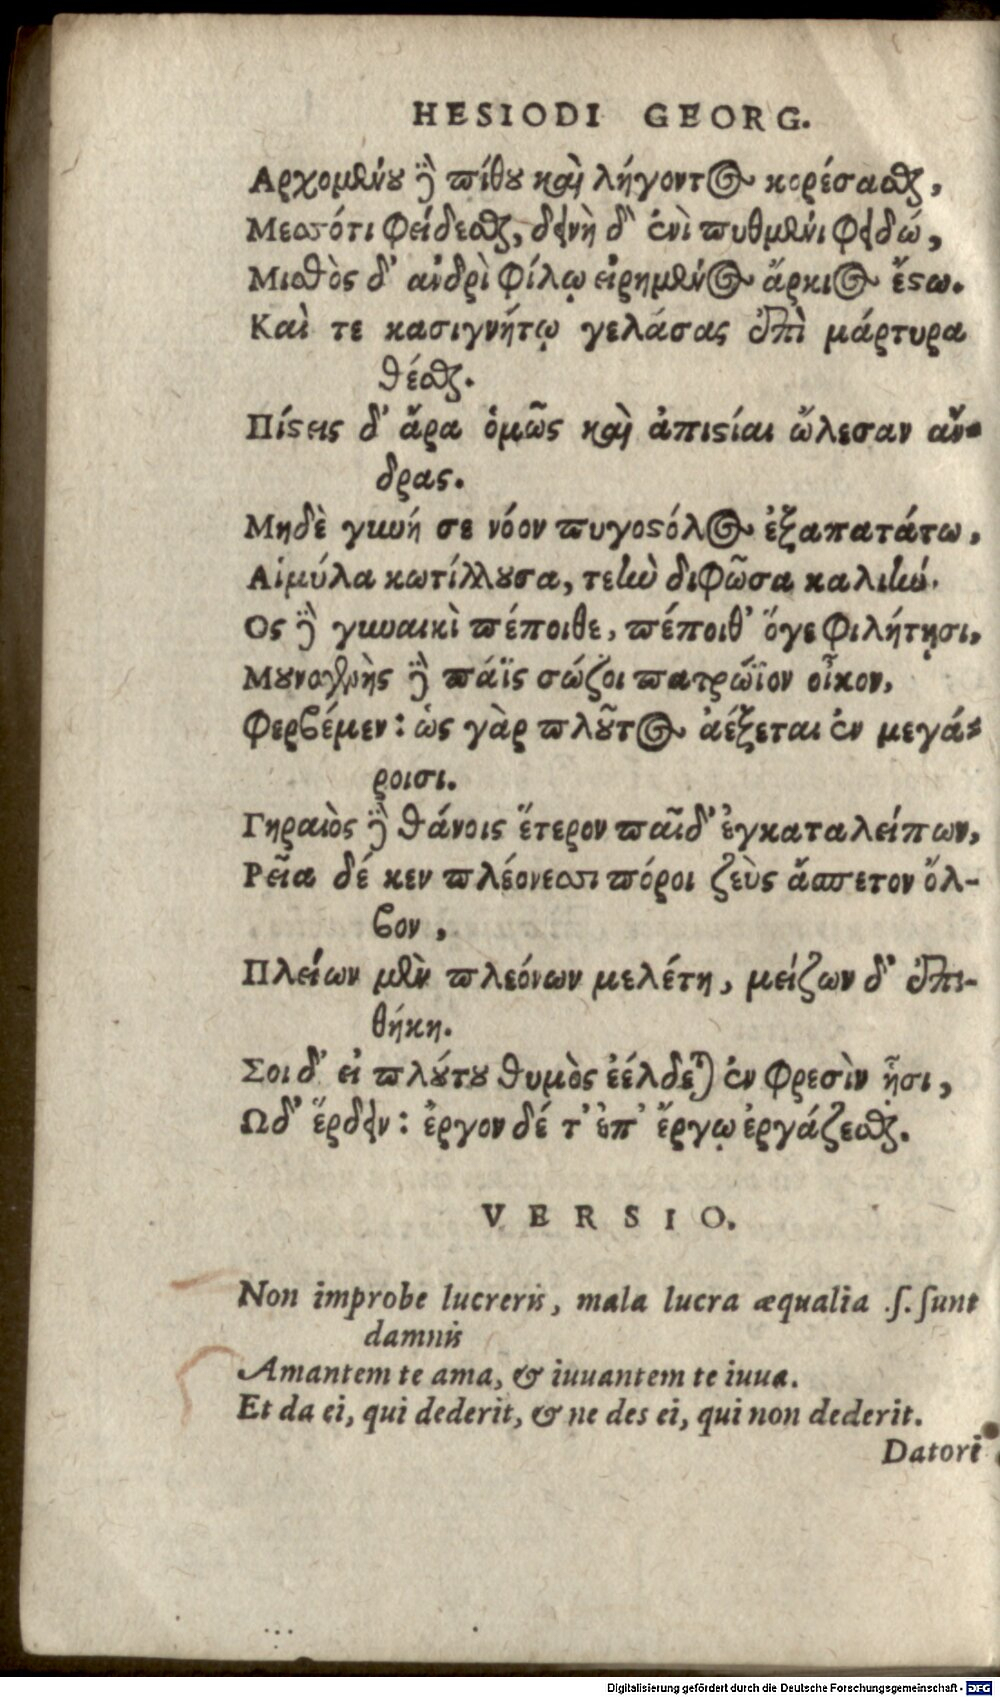 HESIODI GEORG.
Αρχομένου δὲ πίθου καὶ λήγοντος κορέσασθαι,
Μεσσότι φείδεσθαι, δεινὴ δ' ἐνὶ πυθμένι φειδώ,
Μισθὸς δ' ἀνδρὶ φίλῳ εἰρημένος ἄρκιος ἔστω.
Καὶ τε κασιγνήτῳ γελάσας ἐπὶ μάρτυρα
θέσθαι.
Πίστεις δ' ἄρα ὁμῶς καὶ ἀπιστίαι ὤλεσαν ἄν-
δρας.
Μηδὲ γυνή σε νόον πυγοστόλος ἐξαπατάτω,
Αἱμύλα κωτίλλουσα, τεὴν διφῶσα καλιήν.
Ος δὲ γυναικὶ πέποιθε, πέποιθ' ὅγε φιλήτῃσι,
Μουνογενὴς δὲ πάϊς σώζοι πατρώϊον οἶκον,
Φερβέμεν: ὡς γὰρ πλοῦτος ἀέξεται ἐν μεγά-
ροισι.
Γηραιὸς δὲ θάνοις ἕτερον παῖδ' ἐγκαταλείπων,
Ρεῖα δέ κεν πλέονεσσι πόροι ζεὺς ἄσπετον ὄλ-
βον,
Πλείων μὲν πλεόνων μελέτη, μείζων δ' ἐπι-
θήκη.
Σοι δ' εἰ πλούτου θυμὸς ἐέλδεται ἐν φρεσὶν ᾗσι,
Ωδ' ἔρδειν: ἔργον δέ τ' ἐπ' ἔργῳ ἐργάζεσθαι.
VERSIO.
Non improbe lucreris, mala lucra æqualia .ſ. ſunt
damnis
Amantem te ama, & iuuantem te iuua.
Et da ei, qui dederit, & ne des ei, qui non dederit.
Datori
Digitalisierung gefördert durch die Deutsche Forschungsgemeinschaft - DFG